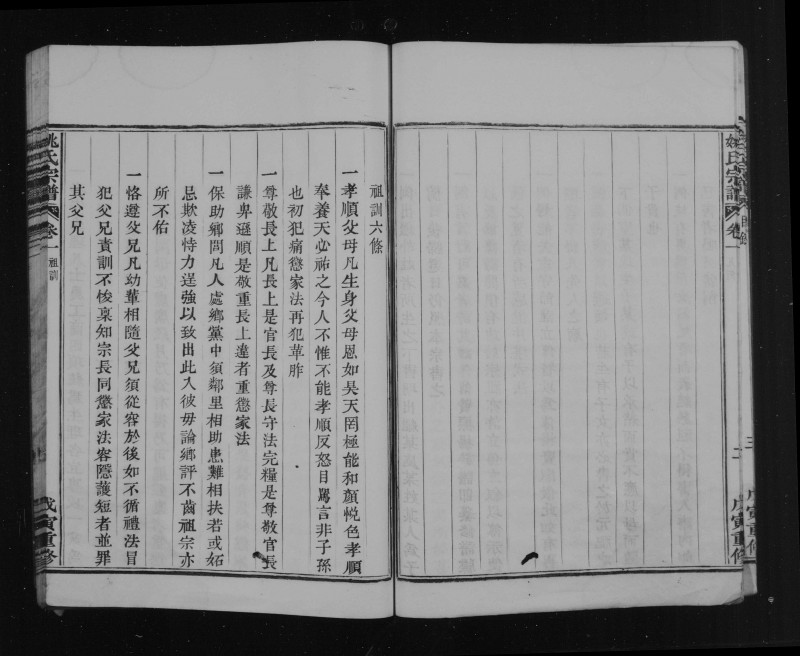 祖訓六條
一孝順父母凡生身父母恩如昊天罔極能和顏悅色孝順
奉養天必祐之今人不惟不能孝順反怒目罵言非子孫
也初犯痛懲家法再犯革胙
一尊敬長上凡長上是官長及尊長守法完糧是尊敬官長
謙卑遜順是敬重長上違者重懲家法
一保助鄉閭凡人處鄉黨中須鄰里相助患難相扶若或妬
忌欺凌恃力逞強以致出此入彼毋論鄉評不齒祖宗亦
所不佑
一恪遵父兄凡幼輩相隨父兄須從容於後如不循禮法冒
犯父兄責訓不悛稟知宗長同懲家法容隱護短者並罪
其父兄
姚氏宗譜
卷一
祖訓
戊寅重修
姚氏宗譜
卷一
二
戊寅重修
三
戊寅重修